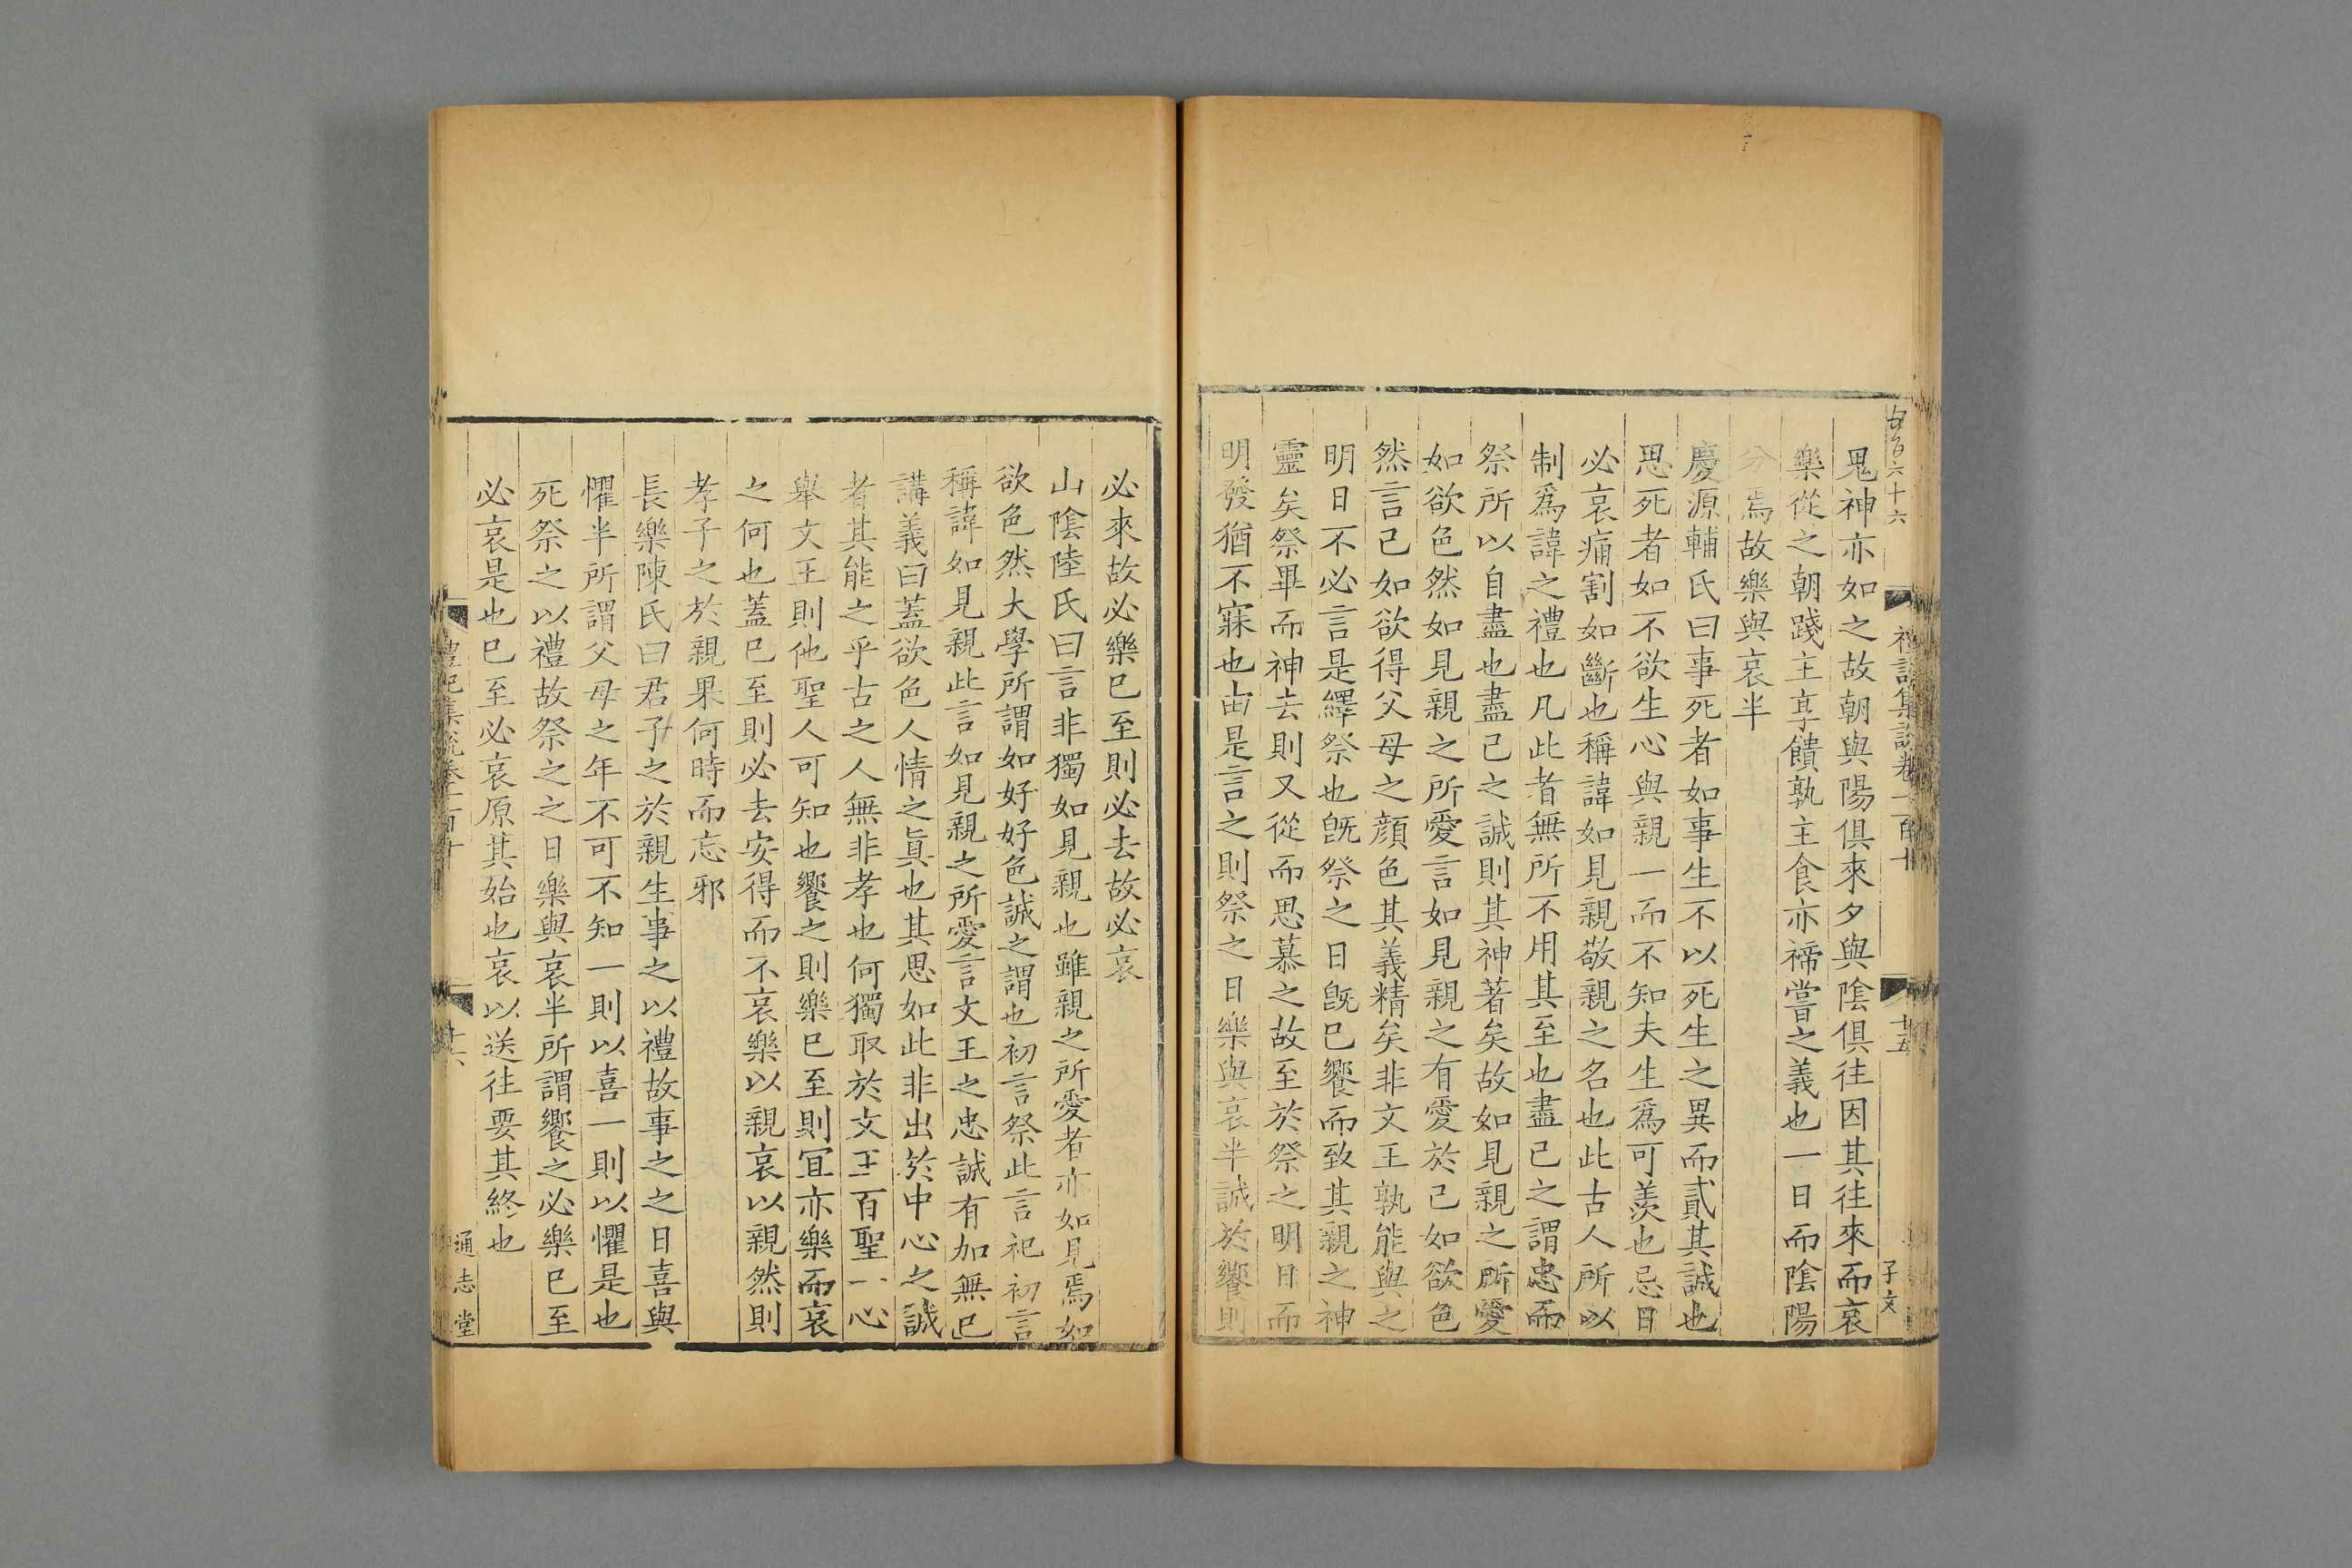 鬼神亦如之故朝與陽俱來夕與陰俱往因其往來而哀
樂從之朝踐主享饋孰主食亦禘嘗之義也一日而陰陽
分焉故樂與哀半
慶源輔氏曰事死者如事生不以死生之異而貳其誠也
思死者如不欲生心與親一而不知夫生爲可羨也忌日
必哀痛割如斷也稱諱如見親敬親之名也此古人所以
制爲諱之禮也凡此者無所不用其至也盡己之謂忠而
祭所以自盡也盡己之誠則其神著矣故如見親之所愛
如欲色然如見親之所愛言如見親之有愛於己如欲色
然言己如欲得父母之顔色其義精矣非文王孰能與之
明日不必言是繹祭也旣祭之日旣已饗而致其親之神
靈矣祭畢而神去則又從而思慕之故至於祭之明日而
明發猶不寐也由是言之則祭之日樂與哀半誠於饗則
子文
必來故必樂已至則必去故必哀
山陰陸氏曰言非獨如見親也雖親之所愛者亦如見焉如
欲色然大學所謂如好好色誠之謂也初言祭此言祀初言
稱諱如見親此言如見親之所愛言文王之忠誠有加無已
講義曰蓋欲色人情之眞也其思如此非出於中心之誠
者其能之乎古之人無非孝也何獨取於文王百聖一心
舉文王則他聖人可知也饗之則樂已至則宜亦樂而哀
之何也蓋已至則必去安得而不哀樂以親哀以親然則
孝子之於親果何時而忘邪
長樂陳氏曰君子之於親生事之以禮故事之之日喜與
懼半所謂父母之年不可不知一則以喜一則以懼是也
死祭之以禮故祭之之日樂與哀半所謂饗之必樂已至
必哀是也已至必哀原其始也哀以送往要其終也
通志堂